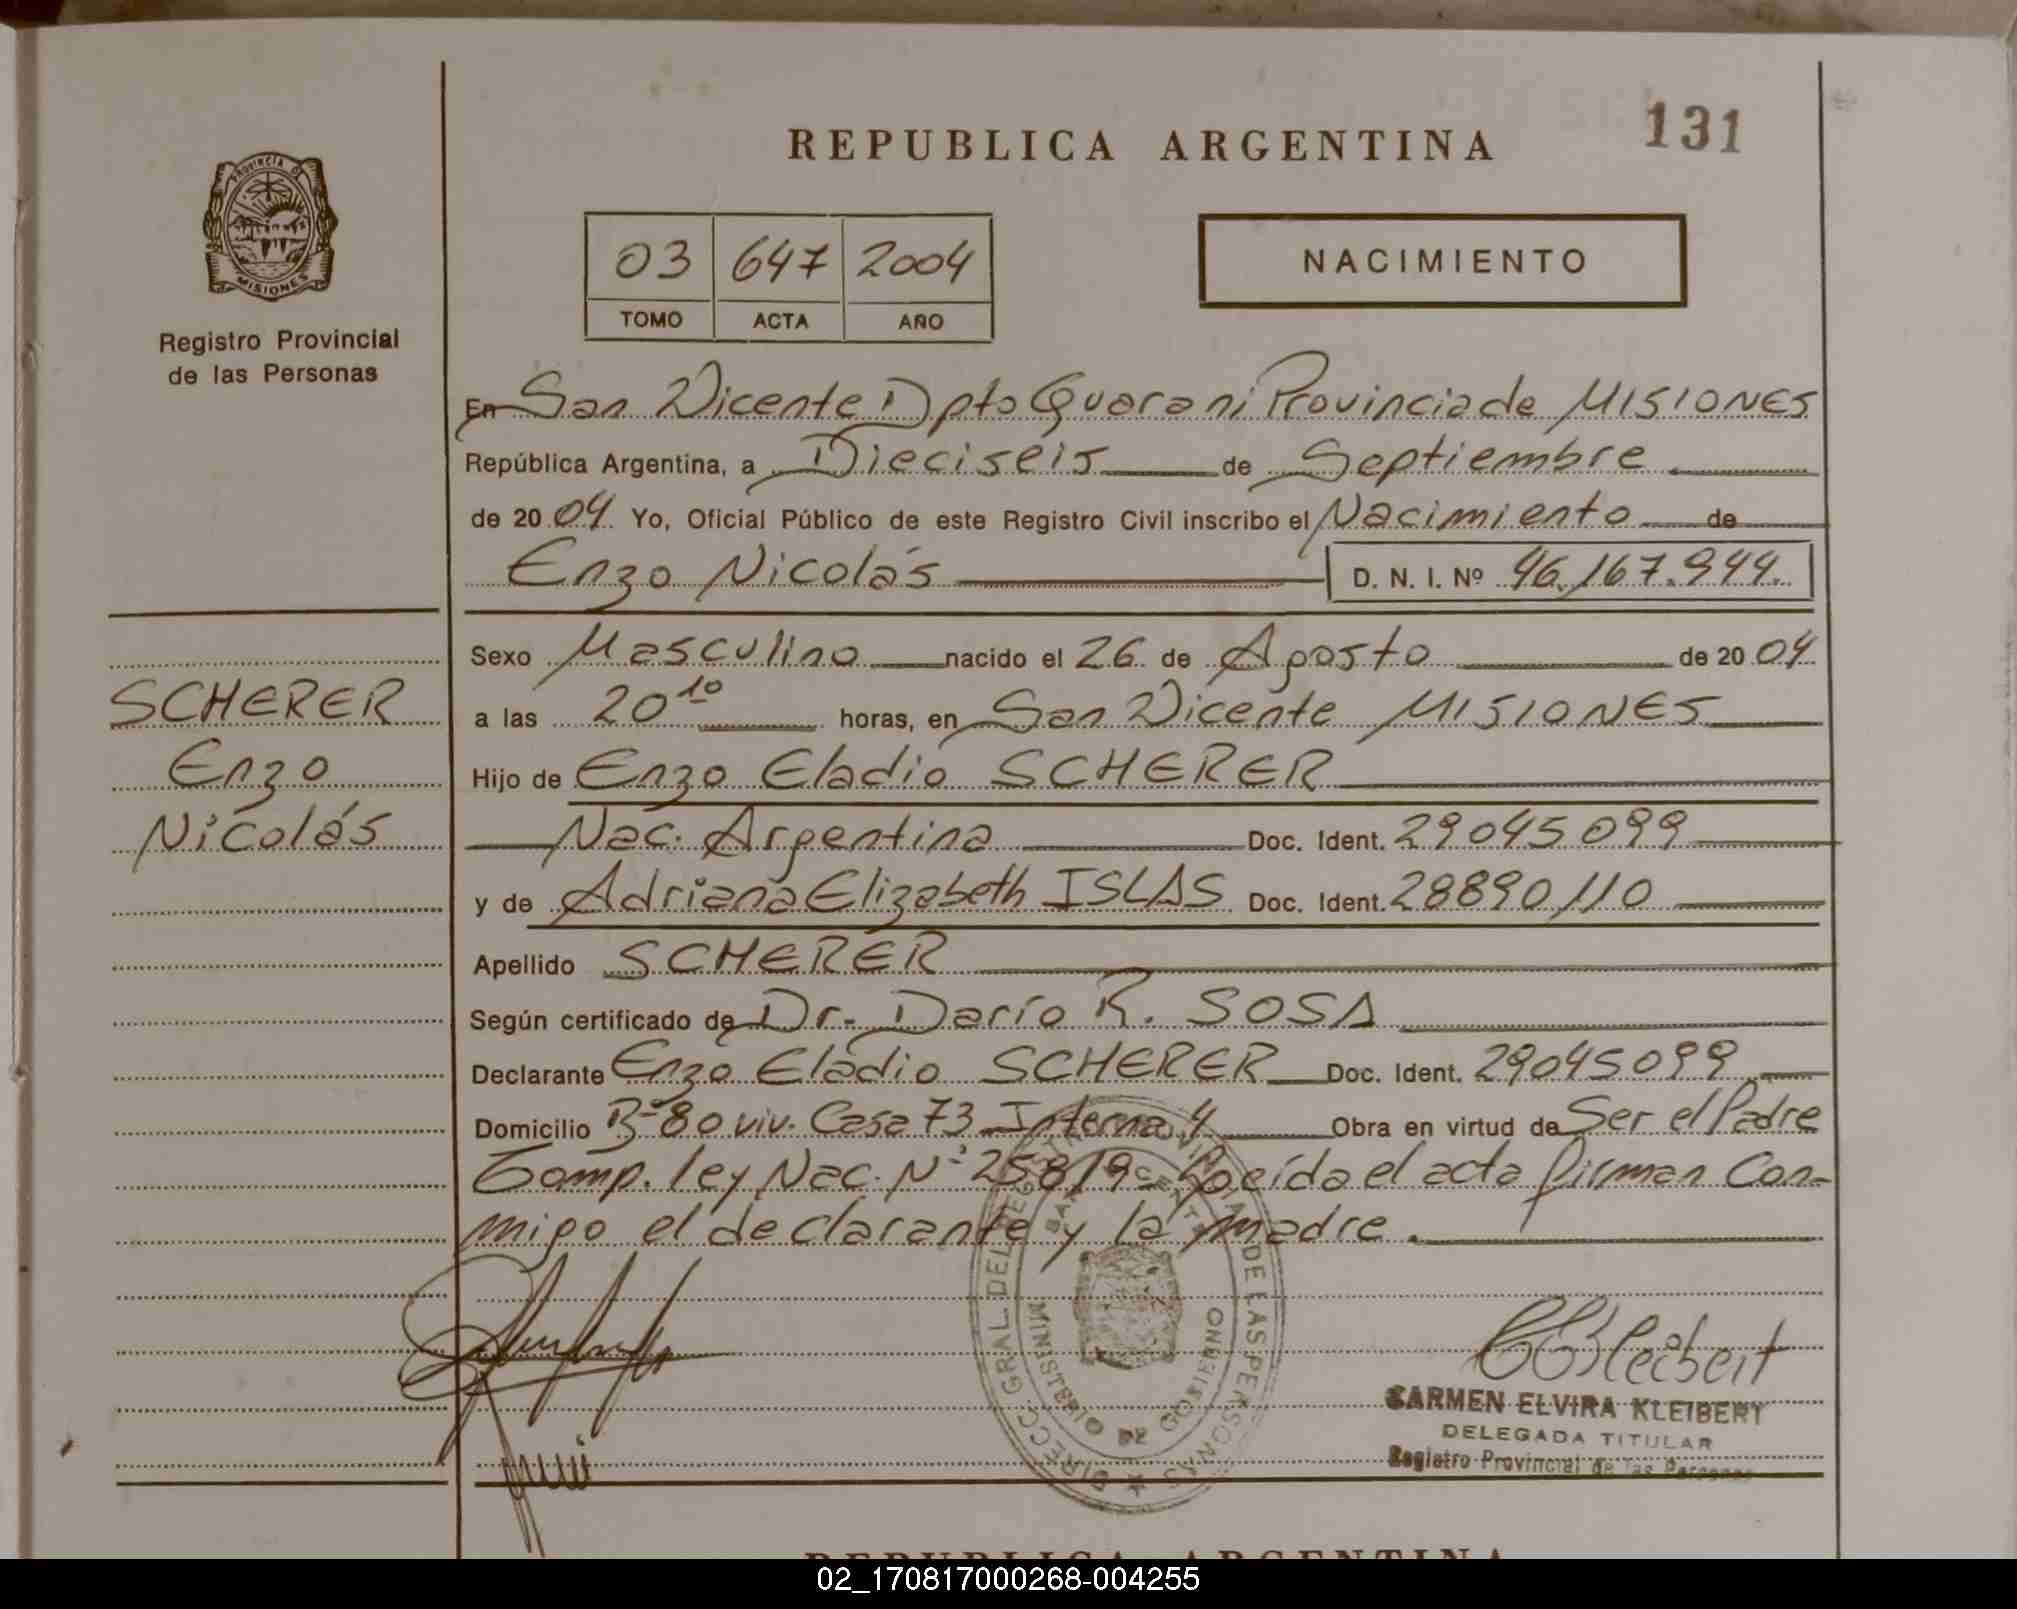 131
REPUBLICA ARGENTINA
PROVINCIA DE
MISIONES
Registro Provincial
de las Personas
03 647 2004
TOMO ACTA AÑO
NACIMIENTO
En San Vicente Dpto Guarani Provincia de MISIONES
República Argentina, a Dieciseis de Septiembre
de 2004 Yo, Oficial Público de este Registro Civil inscribo el Nacimiento de
Enzo Nicolás D. N. I. Nº 46.167.944.
Sexo Masculino nacido el 26 de Agosto de 2004
SCHERER
a las 20 10 horas, en San Vicente MISIONES
Enzo
Hijo de Enzo Eladio SCHERER
Nicolás
Nac. Argentina Doc. Ident. 29045099
y de Adriana Elizabeth ISLAS Doc. Ident. 28890110
Apellido SCHERER
Según certificado de Dr. Darío R. SOSA
Declarante Enzo Eladio SCHERER Doc. Ident. 29045099
Domicilio Bº 80 viv. Casa 73 Interna 4 Obra en virtud de Ser el Padre
Comp. ley Nac. Nº 25819 Leída el acta firman Con-
migo el declarante y la madre.
DIRECC. GRAL. DEL REG. PROVINCIAL DE LAS PERSONAS
SAN VICENTE
MINISTERIO DE GOBIERNO
CEKleibert
CARMEN ELVIRA KLEIBERT
DELEGADA TITULAR
Registro Provincial de las Personas
REPUBLICA ARGENTINA
02_170817000268-004255